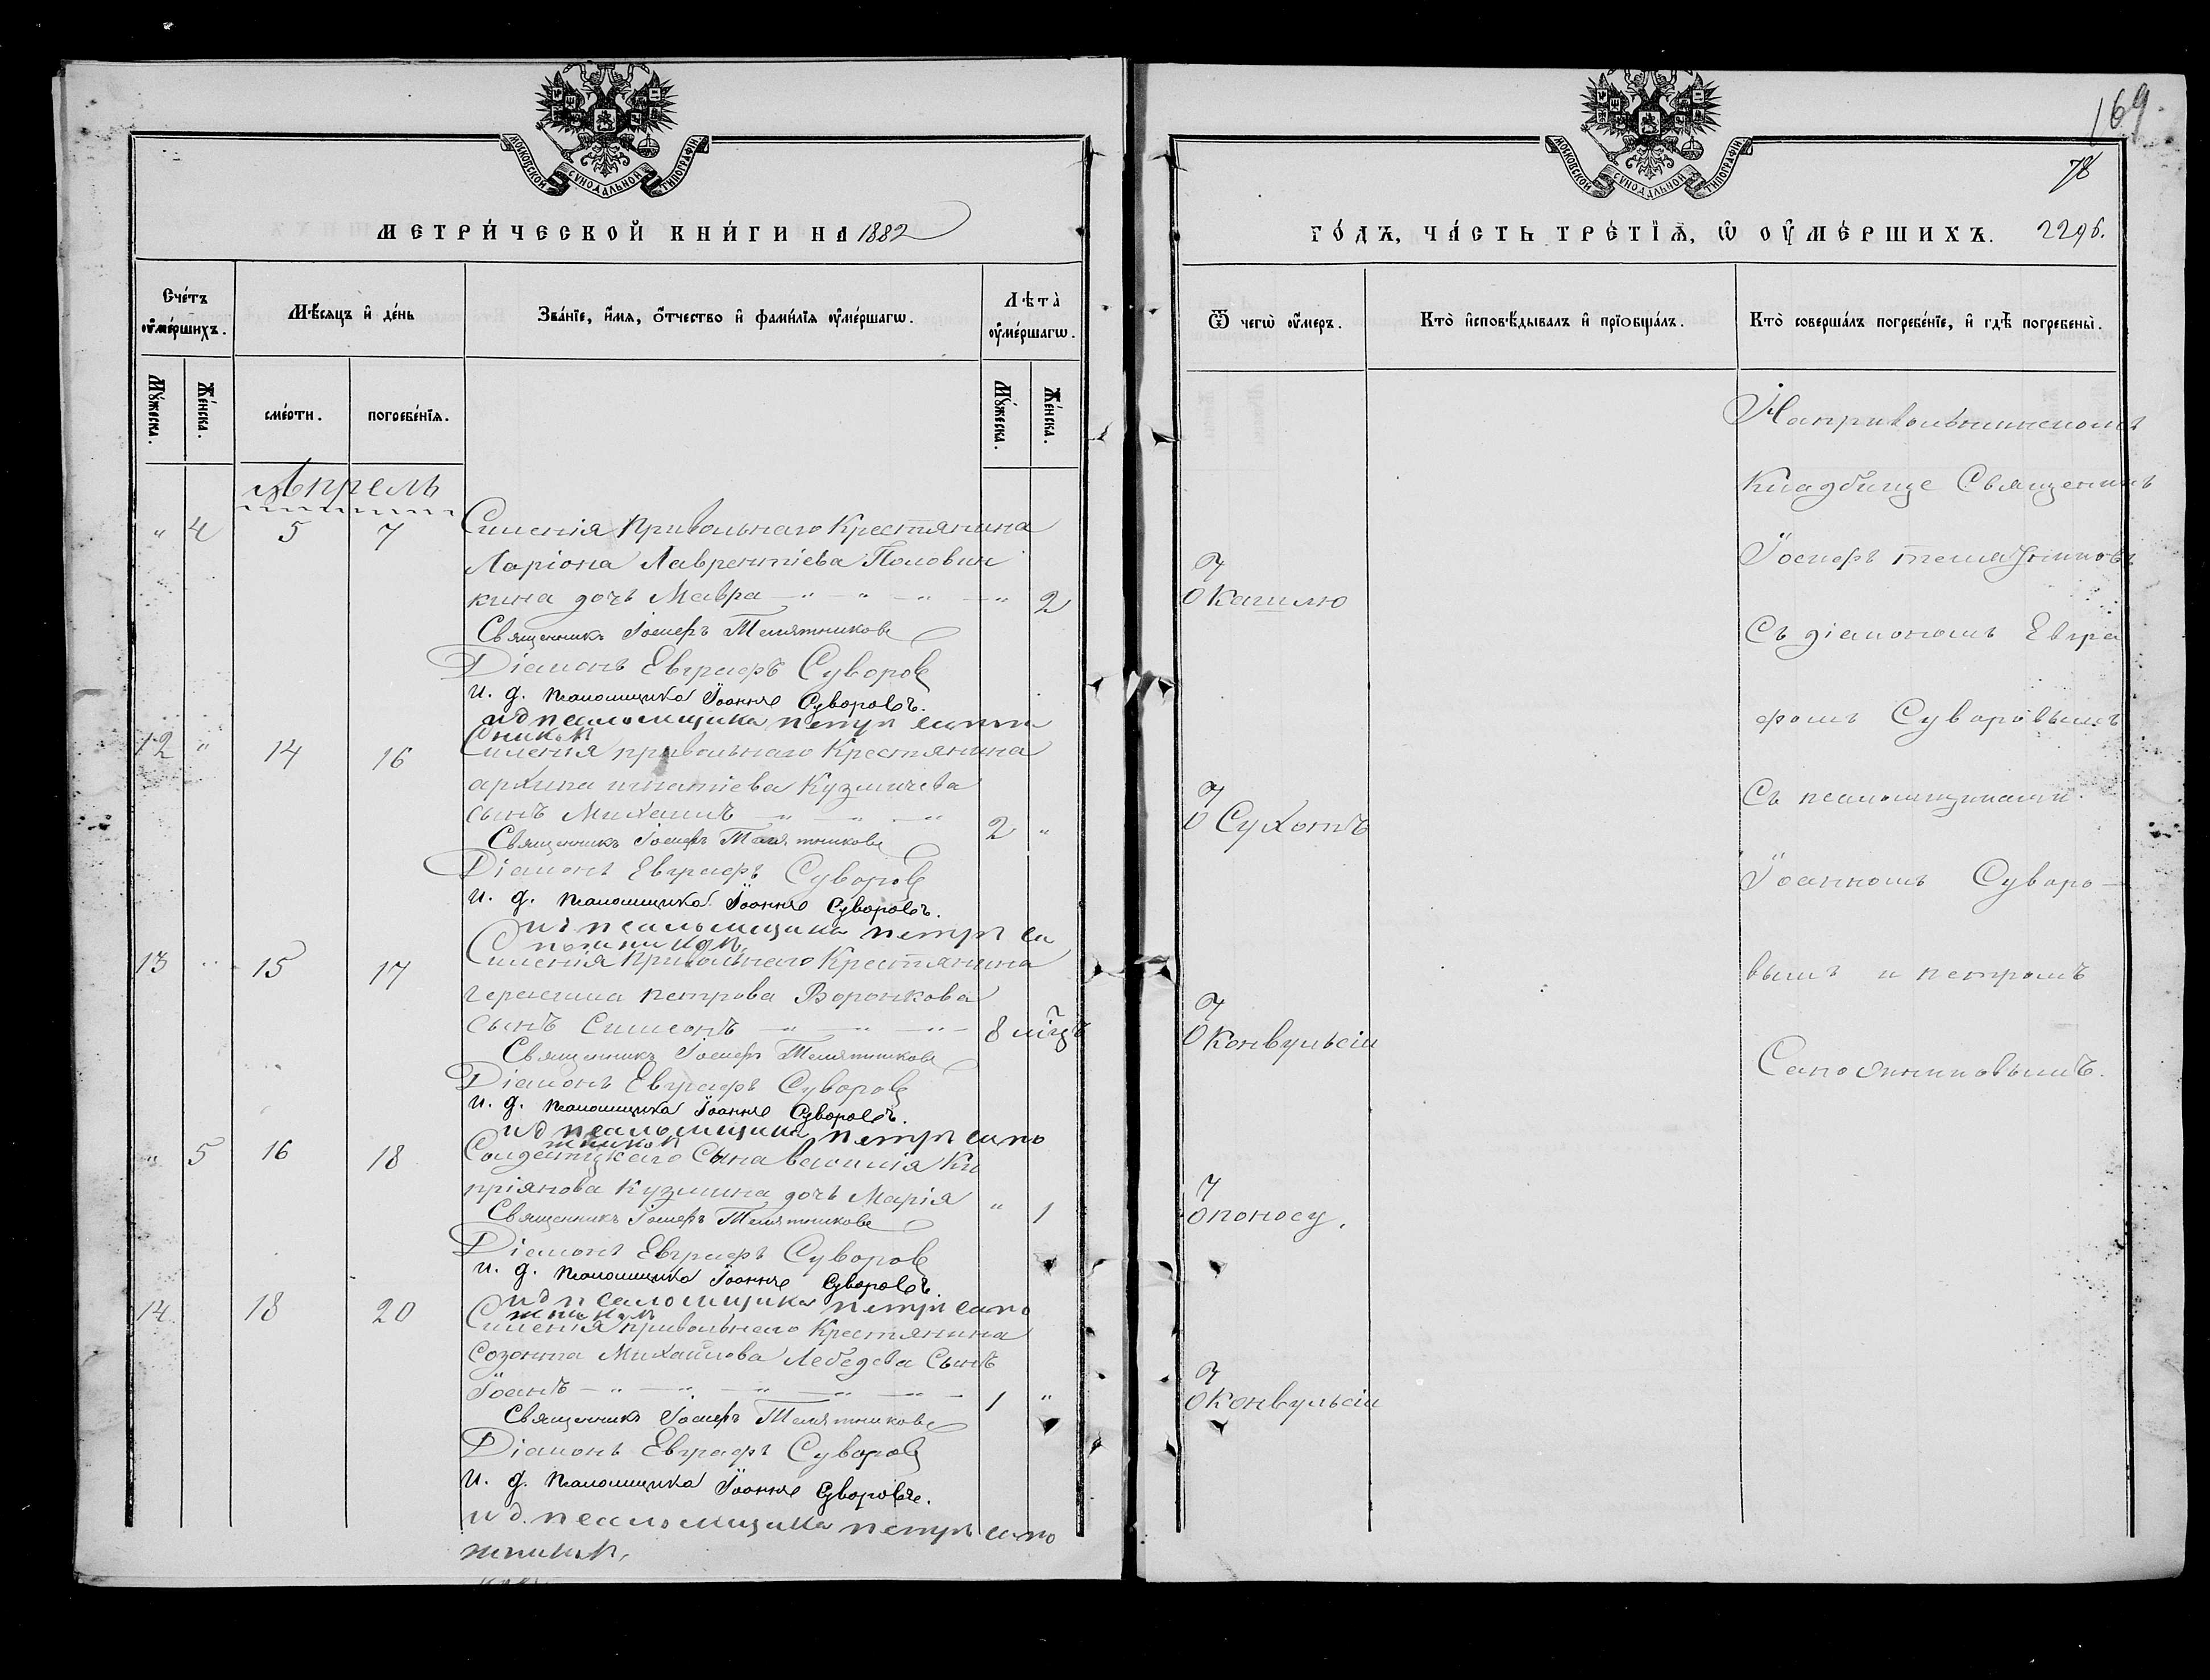 МОСКОВСКОЙ СѴНОДАЛЬНОЙ ТИПОГРАФІИ
МЕТРИ́ЧЕСКОЙ КНИ́ГИ НА 1882
Сче́тъ ᲂу҆ме́ршихъ.
Мѣ́сяцъ и҆ де́нь
Зва́нїе, и҆́мя, ѻ҆́тчество и҆ фами́лїя ᲂу҆ме́ршагѡ.
Лѣта̀ ᲂу҆ме́ршагѡ.
Мꙋ́жеска.
Же́нска.
сме́рти.
погребе́нїя.
Мꙋ́жеска.
Же́нска.
Апрель
" 4 5 7 Силенія Привольнаго Крестянина
Ларіона Лаврентіева Половин
кина дочь Мавра 2
Священникъ Іосифъ Телятниковъ
Діаконъ Евграфъ Суворовъ
и. д. псаломщика Іоаннъ Суворовъ.
и д псаломщика петръ сапо
жников
12 " 14 16 Силенія привольнаго Крестянина
архипа игнатіева Кузмичева
сынъ Михаилъ 2 "
Священникъ Іосифъ Телятниковъ
Діаконъ Евграфъ Суворовъ
и. д. псаломщика Іоаннъ Суворовъ.
и д псаломщика петръ са
пожников
13 " 15 17 Силенія Привольнаго Крестянина
герасима петрова Воронкова
сынъ Симеонъ 8 мѣцъ
Священникъ Іосифъ Телятниковъ
Діаконъ Евграфъ Суворовъ
и. д. псаломщика Іоаннъ Суворовъ.
и д псаломщика петръ сапо
жников
" 5 16 18 Солдатцкаго Сына Ки
пріянова Кузмина дочь Марія " 1
Священникъ Іосифъ Телятниковъ
Діаконъ Евграфъ Суворовъ
и. д. псаломщика Іоаннъ Суворовъ.
и д псаломщика петръ сапо
жников
14 18 20 Силенія привольнаго Крестянина
Созонта Михайлова Лебедева Сынъ
Іоанъ 1 "
Священникъ Іосифъ Телятниковъ
Діаконъ Евграфъ Суворовъ
и. д. псаломщика Іоаннъ Суворовъ.
и д. псаломщика петръ сапо
жников.
169
78
МОСКОВСКОЙ СѴНОДАЛЬНОЙ ТИПОГРАФІИ
ГО́ДЪ, ЧА́СТЬ ТРЕ́ТЇѦ, Ѡ҆ ОУ҆МЕ́РШИХЪ. 229б.
Ѿ чегѡ̀ ᲂу҆́меръ.
Кто̀ и҆сповѣ́дывалъ и҆ прїобща́лъ.
Кто̀ соверша́лъ погребе́нїе, и҆ гдѣ̀ погребены̀.
Ѿ Кашлю
Ѿ Сухотъ
Ѿ Конвульсіи
Ѿ поносу.
Ѿ Конвульсіи
На привольнинскомъ
Кладбище Священникъ
Іосифъ телятниковъ
Съ діакономъ Евгра
фомъ Суворовымъ
Съ псаломщиками
Іоанномъ Суворо-
вымъ и петромъ
Сапожниковымъ.